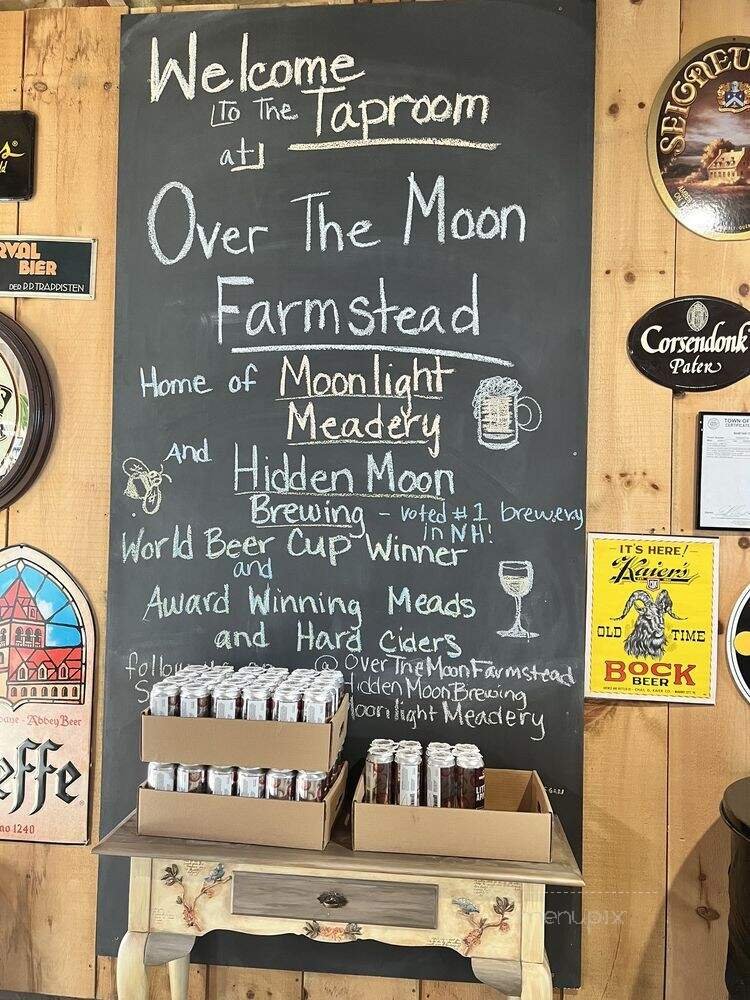 Welcome
To The Taproom
at
Over The Moon
Farmstead
Home of Moonlight
Meadery
And Hidden Moon
Brewing - voted #1 brewery
in NH!
World Beer Cup Winner
and
Award Winning Meads
and Hard Ciders
follow
@ OverTheMoonFarmstead
HiddenMoonBrewing
Moonlight Meadery
RVAL
BIER
DER P.P. TRAPPISTEN
Abbey Beer
effe
no 1240
SEIGNEU
Corsendonk
Pater
TOWN OF
IT'S HERE!
Kaier's
OLD TIME
BOCK
BEER
menupix